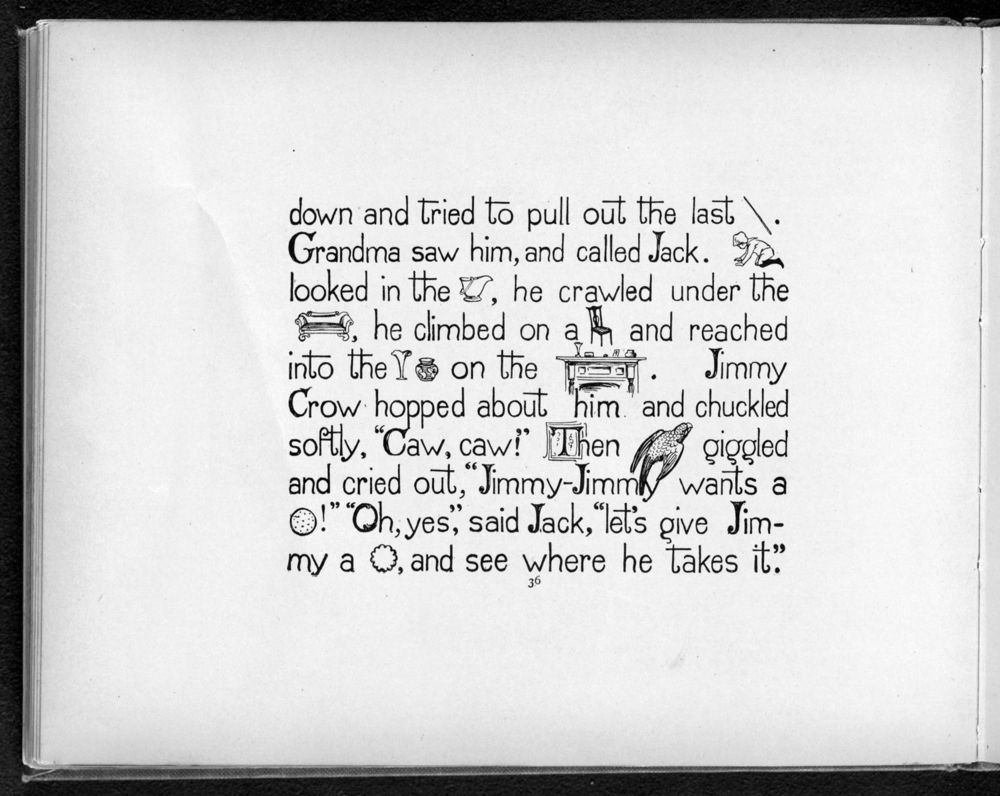 down and tried to pull out the last .
Grandma saw him, and called Jack.
looked in the , he crawled under the
, he climbed on a and reached
into the on the . Jimmy
Crow hopped about him and chuckled
softly, "Caw, caw!" Then giggled
and cried out, "Jimmy-Jimmy wants a
!" "Oh, yes," said Jack, "let's give Jim-
my a , and see where he takes it."
36